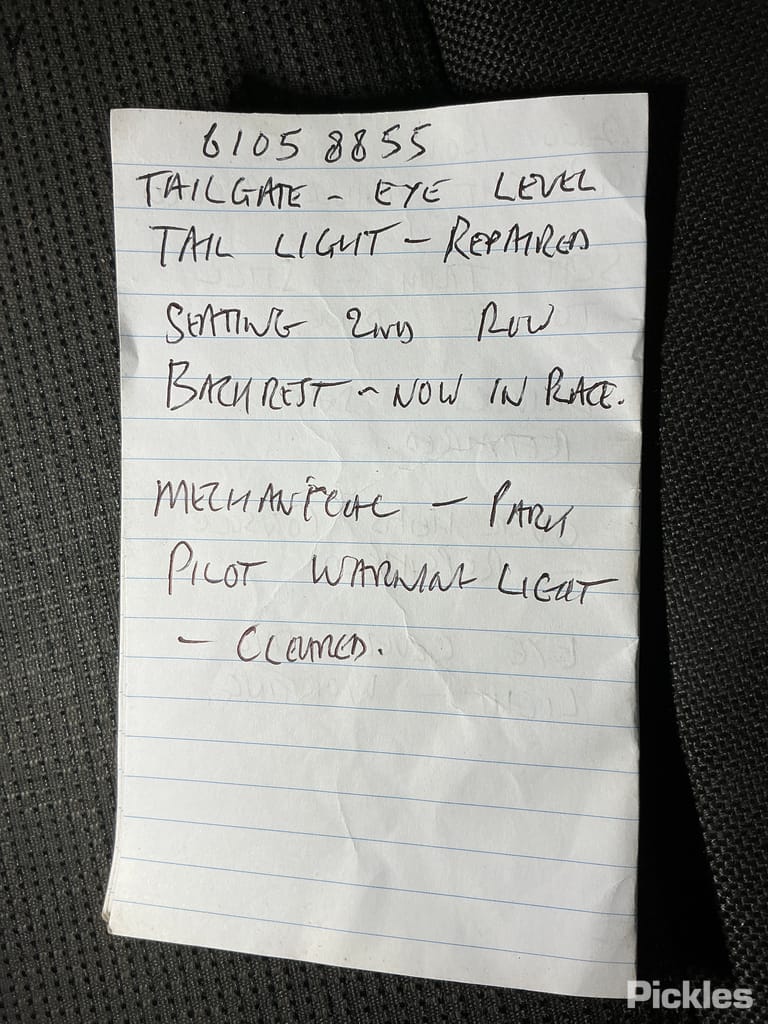 6105 8855
TAILGATE - EYE LEVEL
TAIL LIGHT - REPAIRED
SEATING 2ND ROW
BACKREST - NOW IN PLACE.
MECHANICAL - PARK
PILOT WARNING LIGHT
- CLEARED.
Pickles